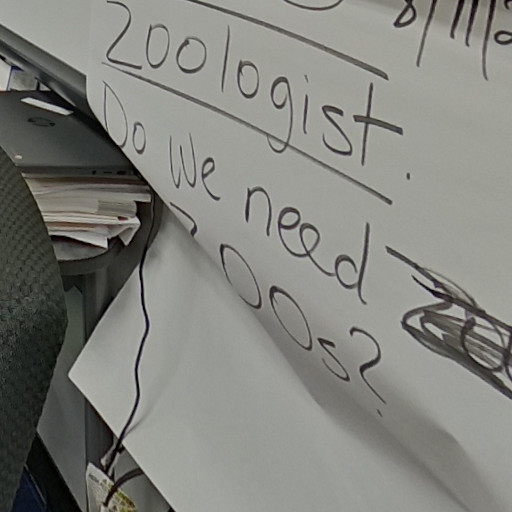 8/11/2
Zoologist.
Do We need
Zoos?